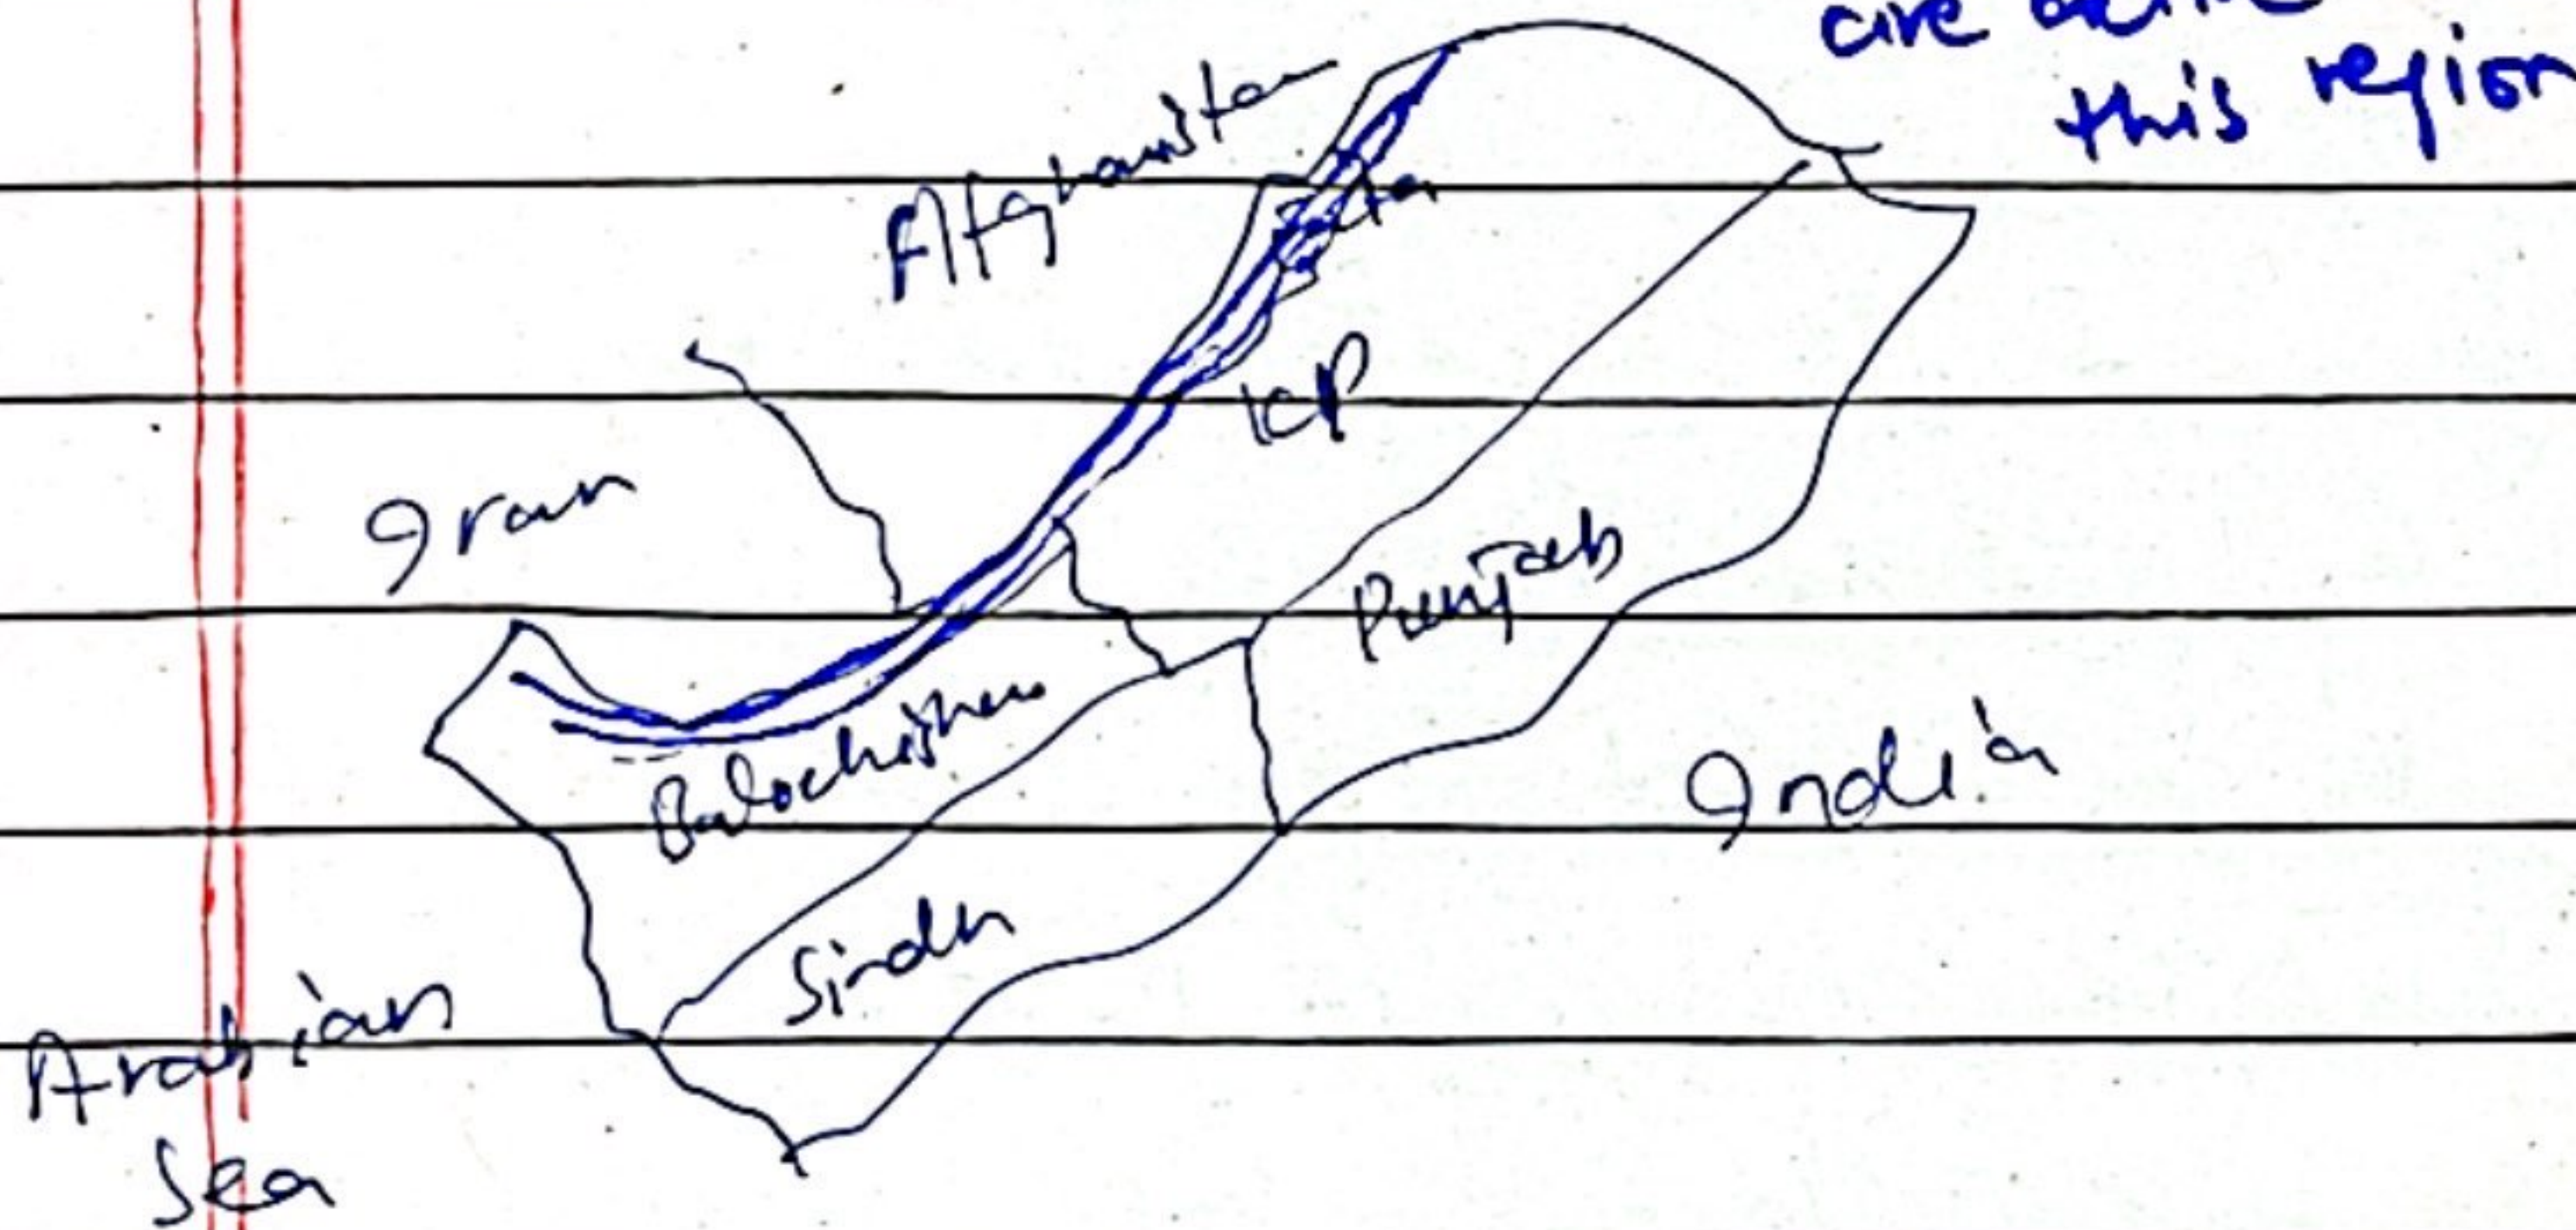 are
this region
Afghanistan
KP
Iran
Punjab
Balochistan
India
Sindh
Arabian
Sea